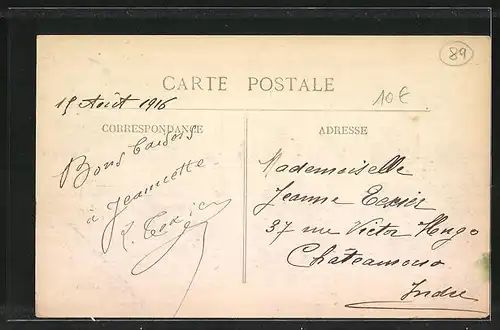 89
CARTE POSTALE
10€
15 Août 1916
CORRESPONDANCE
ADRESSE
Bons baisers
à Jeannette
L. Texier
Mademoiselle
Jeanne Texier
37 rue Victor Hugo
Châteauroux
Indre